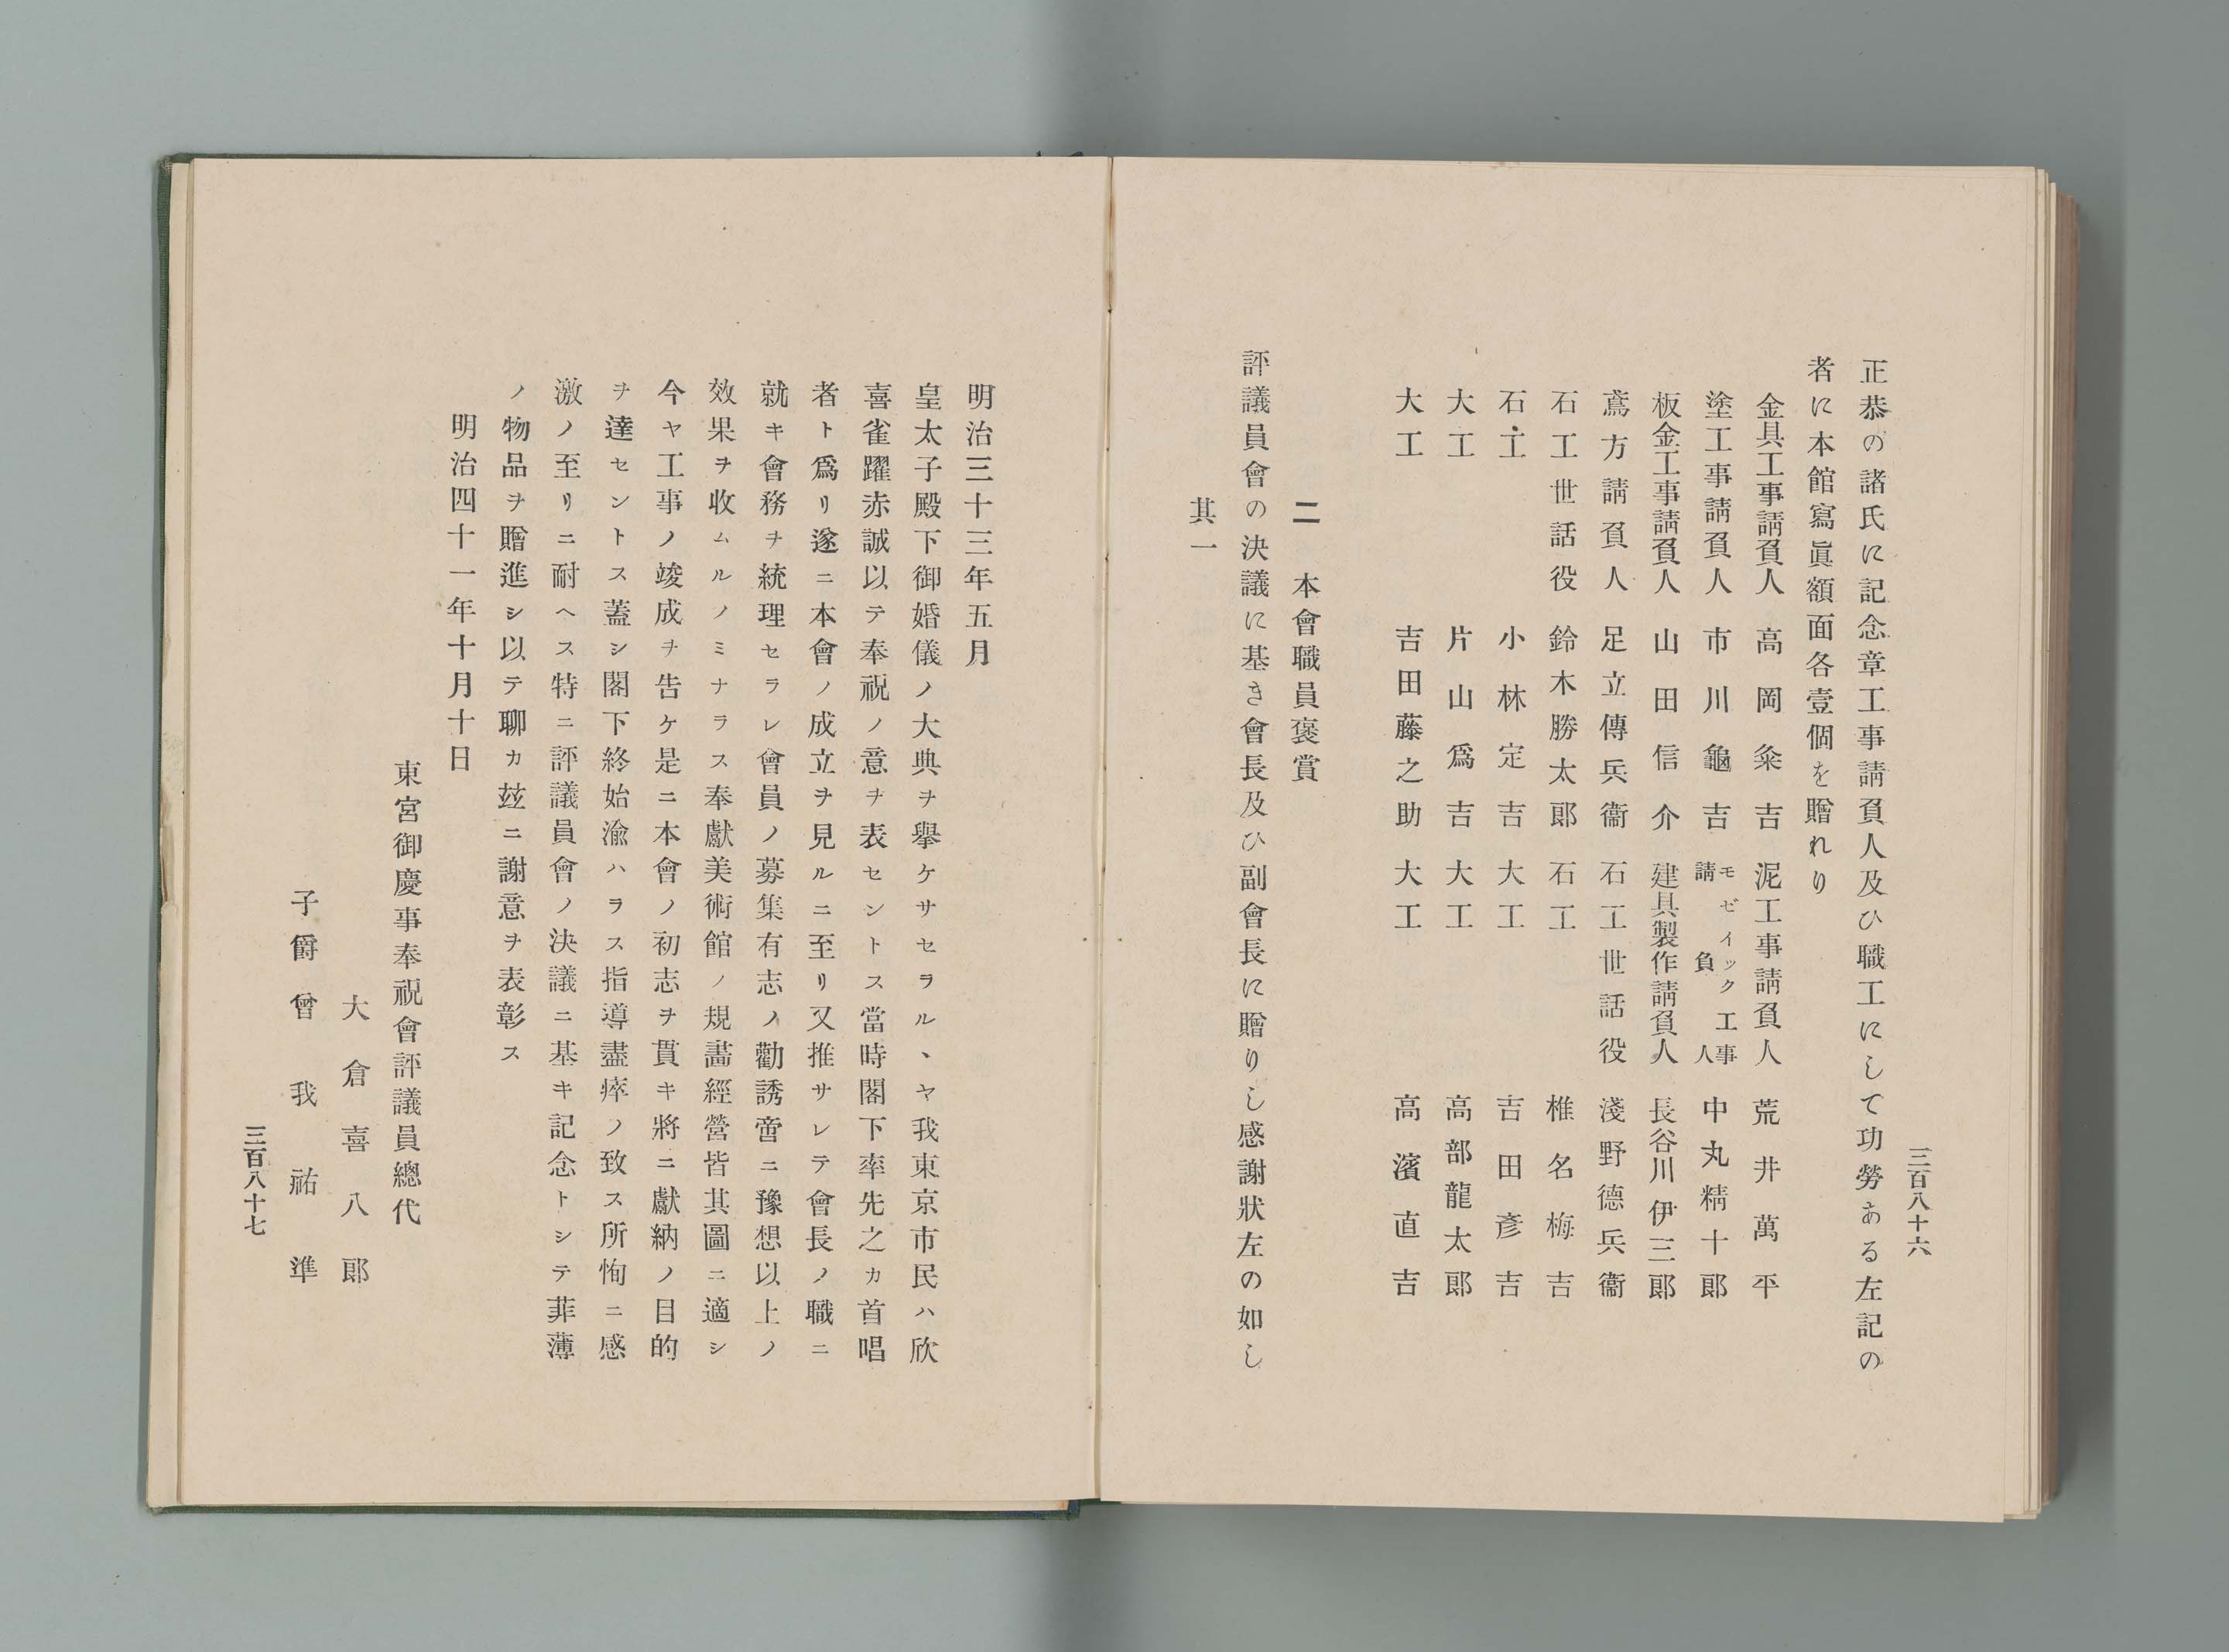 三百八十六
正恭の諸氏に記念章工事請負人及ひ職工にして功勞ある左記の
者に本館寫眞額面各壹個を贈れり
金具工事請負人 高岡粂吉 泥工事請負人 荒井萬平
塗工事請負人 市川龜吉 モゼイック工事請負人 中丸精十郎
板金工事請負人 山田信介 建具製作請負人 長谷川伊三郎
鳶方請負人 足立傳兵衞 石工世話役 淺野德兵衞
石工世話役 鈴木勝太郎 石工 椎名梅吉
石工 小林定吉 大工 吉田彥吉
大工 片山爲吉 大工 高部龍太郎
大工 吉田藤之助 大工 高濱直吉
二 本會職員褒賞
評議員會の決議に基き會長及ひ副會長に贈りし感謝狀左の如し
其一
明治三十三年五月
皇太子殿下御婚儀ノ大典ヲ擧ケサセラルヽヤ我東京市民ハ欣
喜雀躍赤誠以テ奉祝ノ意ヲ表セントス當時閣下率先之カ首唱
者ト爲リ遂ニ本會ノ成立ヲ見ルニ至リ又推サレテ會長ノ職ニ
就キ會務ヲ統理セラレ會員ノ募集有志ノ勸誘啻ニ豫想以上ノ
效果ヲ收ムルノミナラス奉獻美術館ノ規畵經營皆其圖ニ適シ
今ヤ工事ノ竣成ヲ告ケ是ニ本會ノ初志ヲ貫キ將ニ獻納ノ目的
ヲ達セントス蓋シ閣下終始渝ハラス指導盡瘁ノ致ス所恂ニ感
激ノ至リニ耐ヘス特ニ評議員會ノ決議ニ基キ記念トシテ菲薄
ノ物品ヲ贈進シ以テ聊カ玆ニ謝意ヲ表彰ス
明治四十一年十月十日
東宮御慶事奉祝會評議員總代
大倉喜八郎
子爵曾我祐準
三百八十七